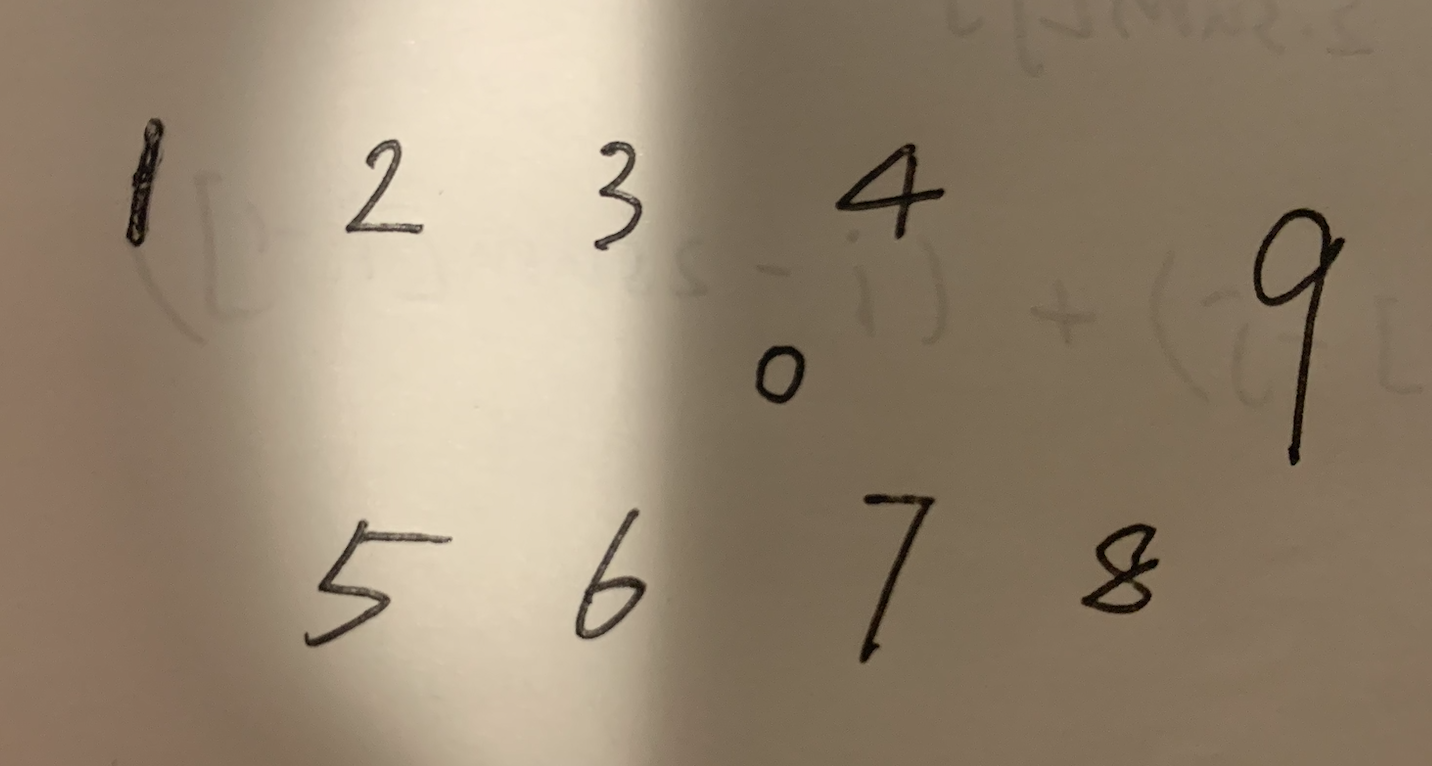 1 2 3 4
9
0
5 6 7 8